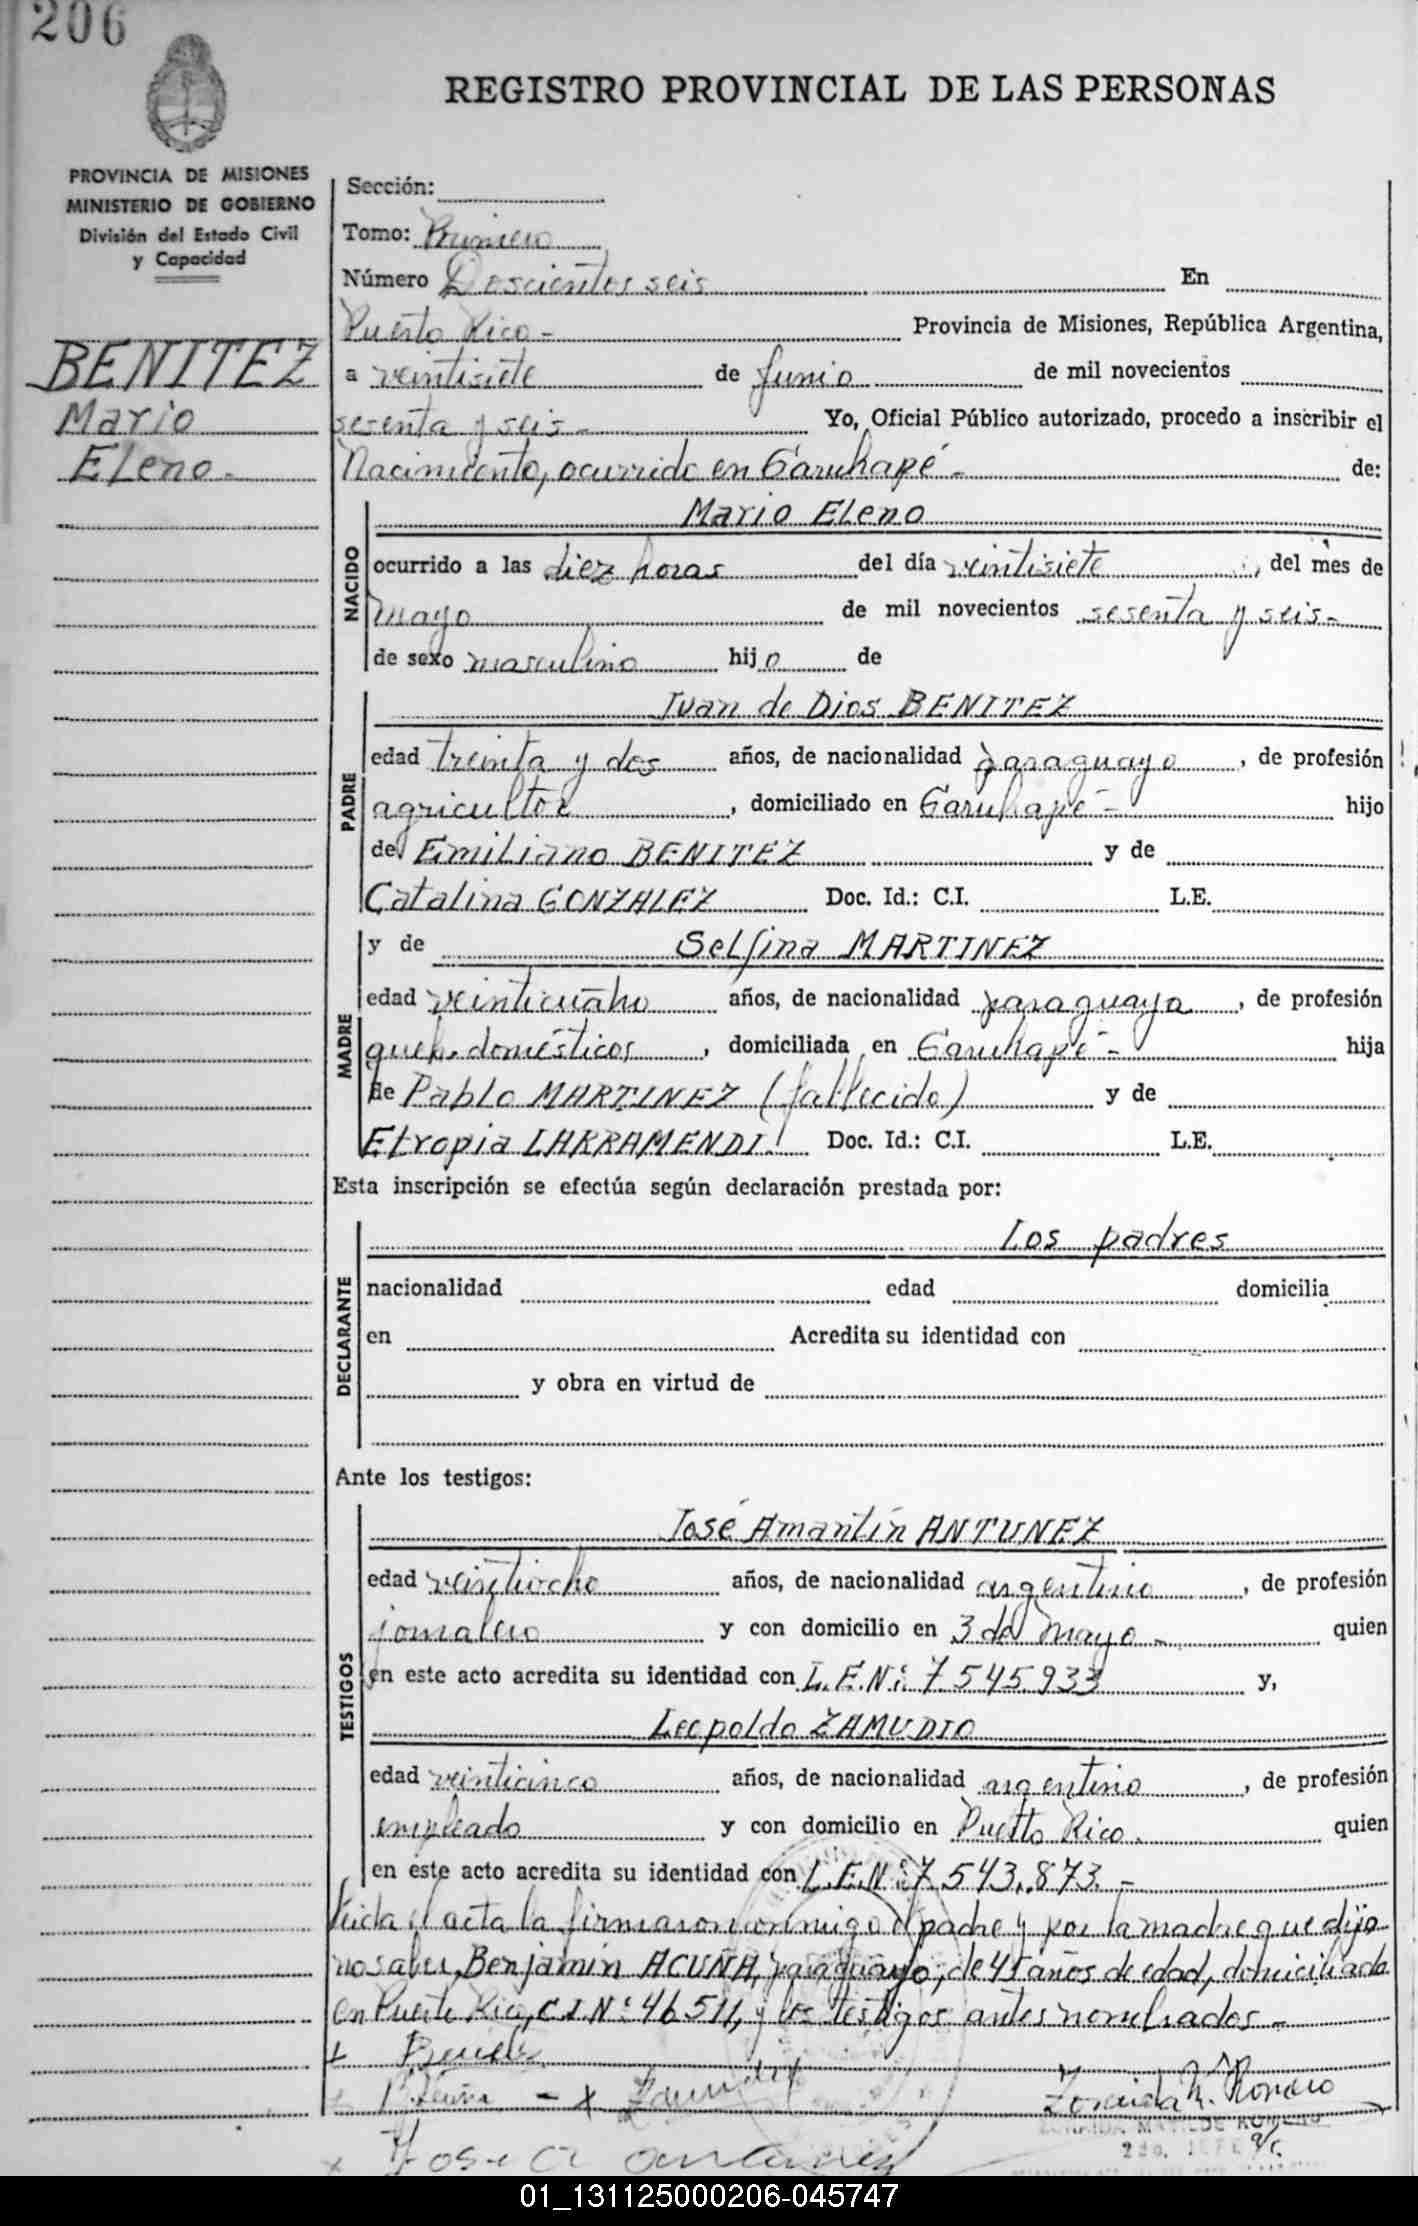 206
REGISTRO PROVINCIAL DE LAS PERSONAS
PROVINCIA DE MISIONES
MINISTERIO DE GOBIERNO
División del Estado Civil
y Capacidad
BENITEZ
Mario
Eleno.-
Sección:
Tomo: Primero
Número Doscientos seis En
Puerto Rico - Provincia de Misiones, República Argentina,
a veintisiete de junio de mil novecientos
sesenta y seis - Yo, Oficial Público autorizado, procedo a inscribir el
Nacimiento, ocurrido en Garuhapé - de:
NACIDO
Mario Eleno
ocurrido a las diez horas del día veintisiete, del mes de
mayo de mil novecientos sesenta y seis-
de sexo masculino hijo de
PADRE
Juan de Dios BENITEZ
edad treinta y dos años, de nacionalidad paraguayo, de profesión
agricultor, domiciliado en Garuhapé - hijo
de Emiliano BENITEZ y de
Catalina GONZALEZ Doc. Id.: C.I. L.E.
MADRE
y de Selfina MARTINEZ
edad veinticuatro años, de nacionalidad paraguaya, de profesión
queh. domésticos, domiciliada en Garuhapé - hija
de Pablo MARTINEZ (fallecido) y de
Etropia LARRAMENDI. Doc. Id.: C.I. L.E.
Esta inscripción se efectúa según declaración prestada por:
DECLARANTE
Los padres
nacionalidad edad domicilia
en Acredita su identidad con
y obra en virtud de
Ante los testigos:
TESTIGOS
José Amantín ANTUNEZ
edad veintiocho años, de nacionalidad argentino, de profesión
jornalero y con domicilio en 3 de Mayo - quien
en este acto acredita su identidad con L.E.Nº: 7.545.933 y,
Leopoldo ZAMUDIO
edad veinticinco años, de nacionalidad argentino, de profesión
empleado y con domicilio en Puerto Rico. quien
en este acto acredita su identidad con L.E.Nº: 7.543.873. -
Leida el acta la firmaron conmigo el padre y por la madre que dijo
no saber, Benjamín ACUÑA, paraguayo, de 45 años de edad, domiciliado
en Puerto Rico, C.I.Nº: 46511, y los testigos antes nombrados -
Zoraida M. Romero
ZORAIDA MATILDE ROMERO
2do. JEFE
José A antunez
01_131125000206-045747